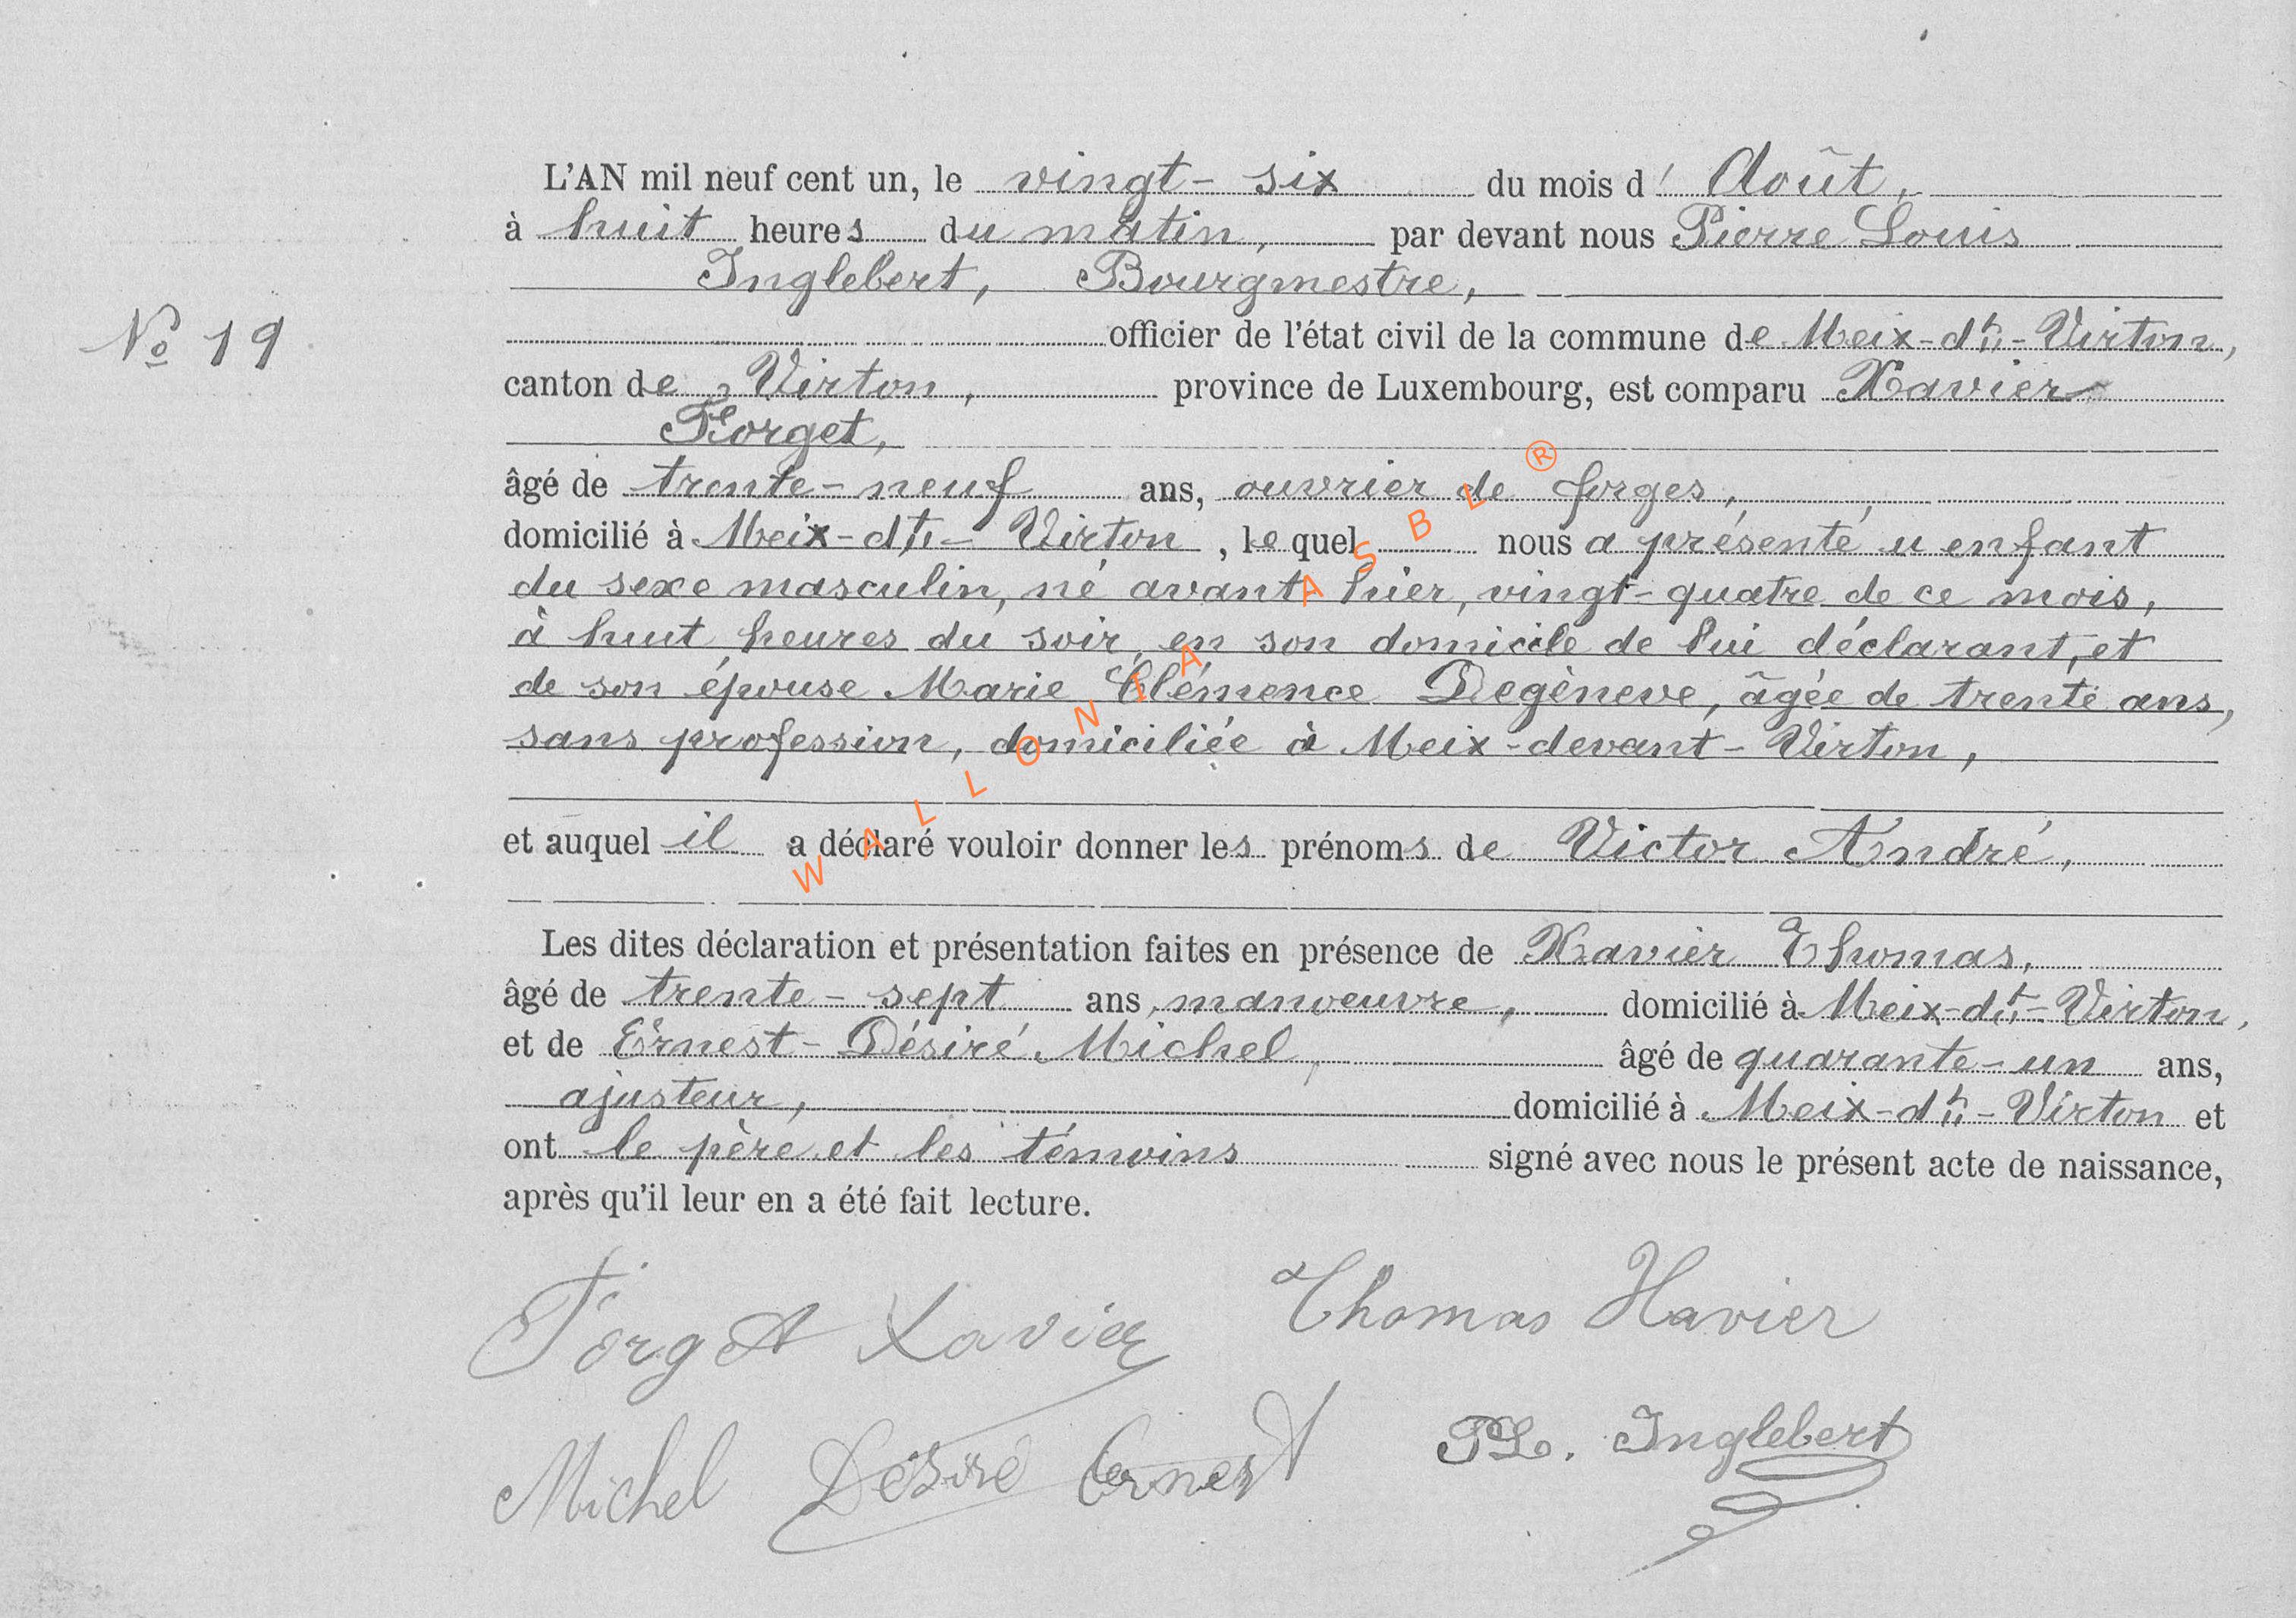 L'AN mil neuf cent un, le vingt-six du mois d'Août,
à huit heures du matin, par devant nous Pierre Louis
Inglebert, Bourgmestre,
officier de l'état civil de la commune de Meix-dt-Virton,
N° 19
canton de Virton, province de Luxembourg, est comparu Xavier
Forget,
âgé de trente-neuf ans, ouvrier de forges,
domicilié à Meix-dt-Virton, lequel nous a présenté u enfant
du sexe masculin, né avant hier, vingt-quatre de ce mois,
à huit heures du soir, en son domicile de lui déclarant, et
de son épouse Marie Clémence Degèneve, âgée de trente ans,
sans profession, domiciliée à Meix-devant-Virton,
et auquel il a déclaré vouloir donner les prénoms de Victor André,
Les dites déclaration et présentation faites en présence de Xavier Thomas,
âgé de trente-sept ans, manoeuvre, domicilié à Meix-dt-Virton,
et de Ernest-Désiré Michel, âgé de quarante-un ans,
ajusteur, domicilié à Meix-dt-Virton et
ont le père et les témoins signé avec nous le présent acte de naissance,
après qu'il leur en a été fait lecture.
Forget Xavier Thomas Xavier
Michel Désiré Ernest PL. Inglebert
WALLONIA ASBL ®